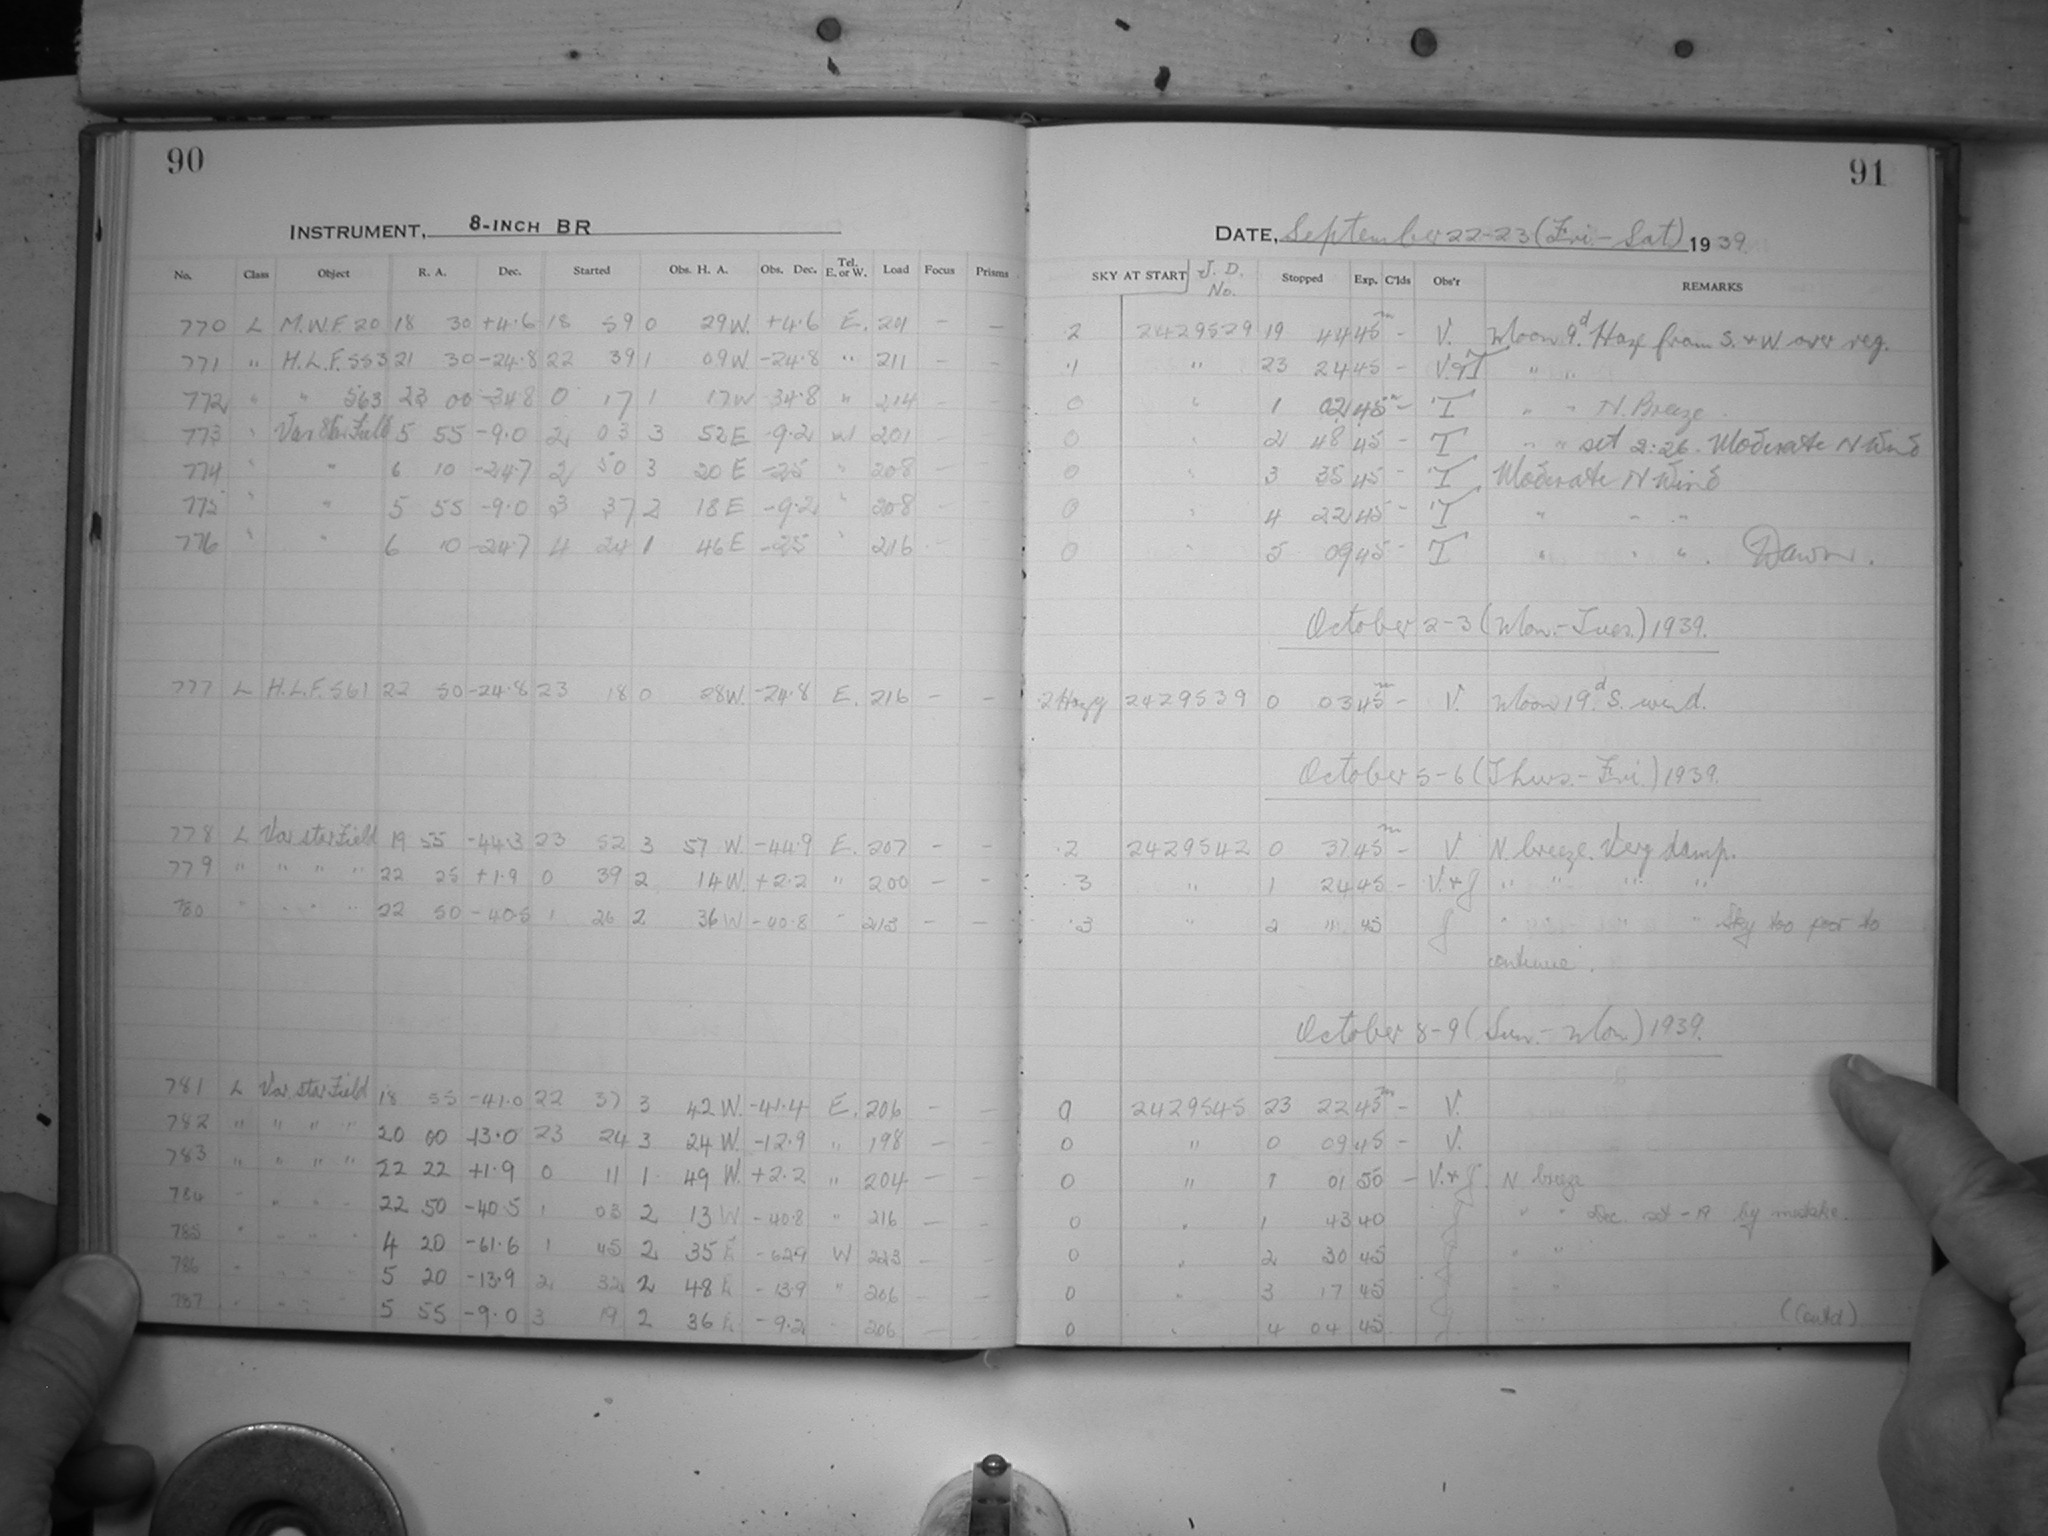 90
INSTRUMENT, 8-INCH BR
No. Class Object R. A. Dec. Started Obs. H. A. Obs. Dec. Tel. E. or W. Load Focus Prisms
770 L M.W.F. 20 18 30 +4.6 18 59 0 29 W. +4.6 E. 201 – –
771 " H.L.F. 553 21 30 -24.8 22 39 1 09 W -24.8 " 211 – –
772 " " 563 23 00 -34.8 0 17 1 17 W 34.8 " 214 – –
773 " Var Star Field 5 55 -9.0 2 03 3 52 E -9.2 201 –
774 " " 6 10 -24.7 2 50 3 20 E -25 " 208 –
775 " " 5 55 -9.0 3 37 2 18 E -9.2 " 208 –
776 " " 6 10 -24.7 4 24 1 46 E -25 " 216 –
777 L H.L.F. 561 22 50 -24.8 23 18 0 28 W. -24.8 E. 216 – –
778 L Var. star Field 19 55 -44.3 23 52 3 57 W. -44.9 E. 207 – –
779 " " " " 22 25 +1.9 0 39 2 14 W. +2.2 " 200 – –
780 " " " " 22 50 -40.5 1 26 2 36 W -40.8 " 213 – –
781 L Var. star Field 18 55 -41.0 22 37 3 42 W. -41.4 E. 206 – –
782 " " " " 20 00 -13.0 23 24 3 24 W. -12.9 " 198 – –
783 " " " " 22 22 +1.9 0 11 1 49 W. +2.2 " 204 – –
784 " " " " 22 50 -40.5 1 03 2 13 W -40.8 " 216 – –
785 " " " " 4 20 -61.6 1 45 2 35 E -62.9 W 223 – –
786 " " " " 5 20 -13.9 2 32 2 48 E -13.9 " 206 – –
787 " " " " 5 55 -9.0 3 19 2 36 E -9.2 " 206 – –
91
DATE, September 22-23 (Fri.-Sat) 1939.
SKY AT START J. D. No. Stopped Exp. C'lds Obs'r REMARKS
.2 2429529 19 44 45m – V. Moon 9d. Haze from S. + W. over reg.
.1 " 23 24 45 – V.+T " "
0 " 1 02 45m – T " " N. Breeze
0 " 2 48 45 – T " " set 2:26. Moderate N Wind
0 " 3 35 45 – T Moderate N Wind
0 " 4 22 45 – T " " "
0 " 5 09 45 – T " " " . Dawn.
October 2-3 (Mon.-Tues.) 1939.
.2 Hazy 2429539 0 03 45m – V. Moon 19d. S. wind.
October 5-6 (Thurs.-Fri.) 1939.
.2 2429542 0 37 45m – V. N. breeze. Very damp.
.3 " 1 24 45 – V.+J " " " "
.3 " 2 11 45 J " " " " Sky too poor to
continue.
October 8-9 (Sun.-Mon) 1939.
0 2429545 23 22 45m – V.
0 " 0 09 45 – V.
0 " 1 01 50 – V.+J. N. breeze
0 " 1 43 40 J " " Dec. set -19 by mistake.
0 " 2 30 45 J " "
0 " 3 17 45 J " "
0 " 4 04 45 J " " (Contd)